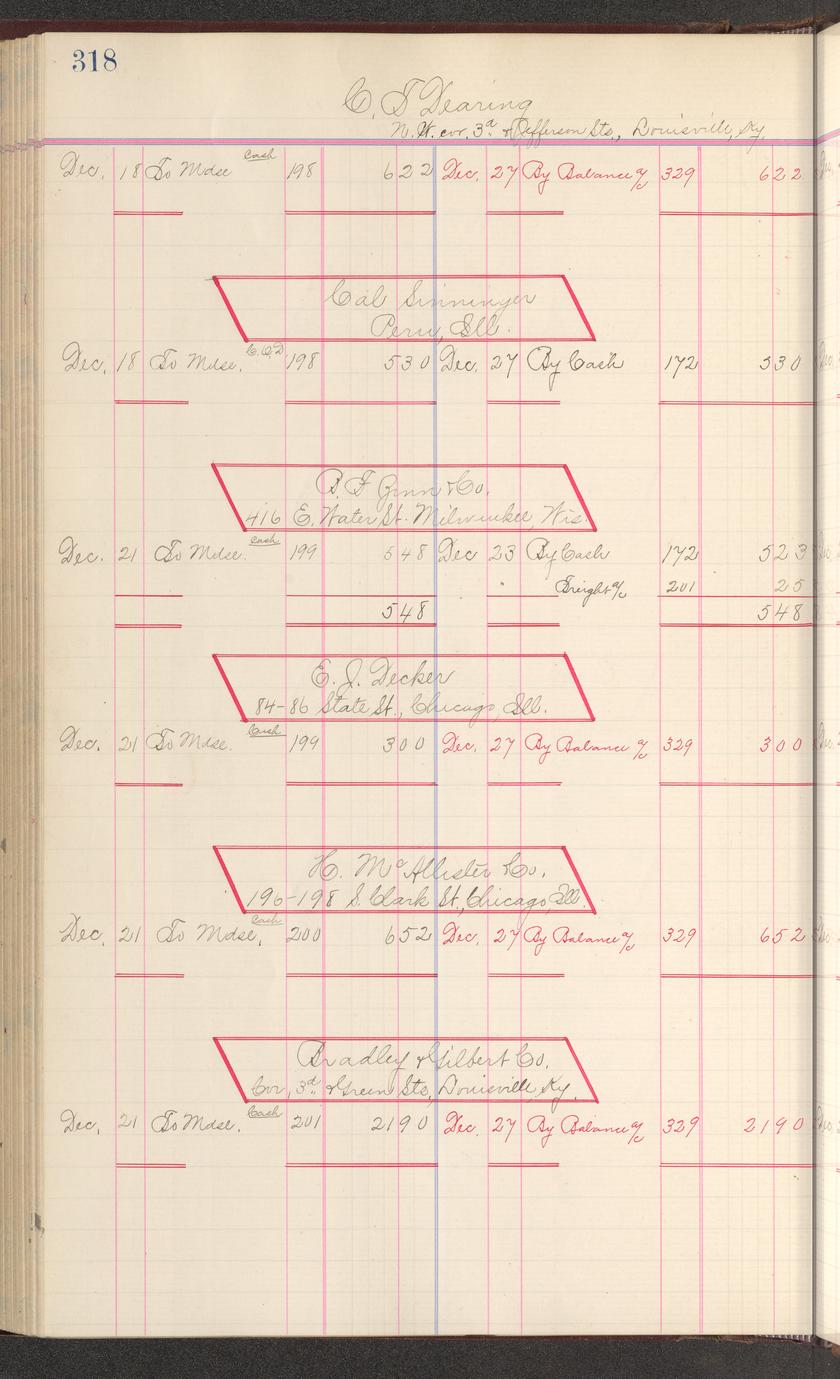 318
C. T. Dearing
N. W. cor. 3d & Jefferson Sts., Louisville, Ky.
Dec. 18 To Mdse Cash 198 622 Dec. 27 By Balance a/c 329 622
Cal Sinninger
Peru, Ill.
Dec. 18 To Mdse. C.O.D. 198 530 Dec. 27 By Cash 172 530
& Co.
416 E. Water St. Milwaukee, Wis.
Dec. 21 To Mdse. Cash 199 548 Dec 23 By Cash 172 523
" Freight a/c 201 25
548 548
E. J. Decker
84-86 State St., Chicago, Ill.
Dec. 21 To Mdse. Cash 199 300 Dec. 27 By Balance a/c 329 300
H. McAllister & Co.
196-198 S. Clark St., Chicago, Ill.
Dec. 21 To Mdse, Cash 200 652 Dec. 27 By Balance a/c 329 652
Bradley & Gilbert Co.
Cor, 3d & Green Sts, Louisville Ky.
Dec. 21 To Mdse. Cash 201 2190 Dec. 27 By Balance a/c 329 2190